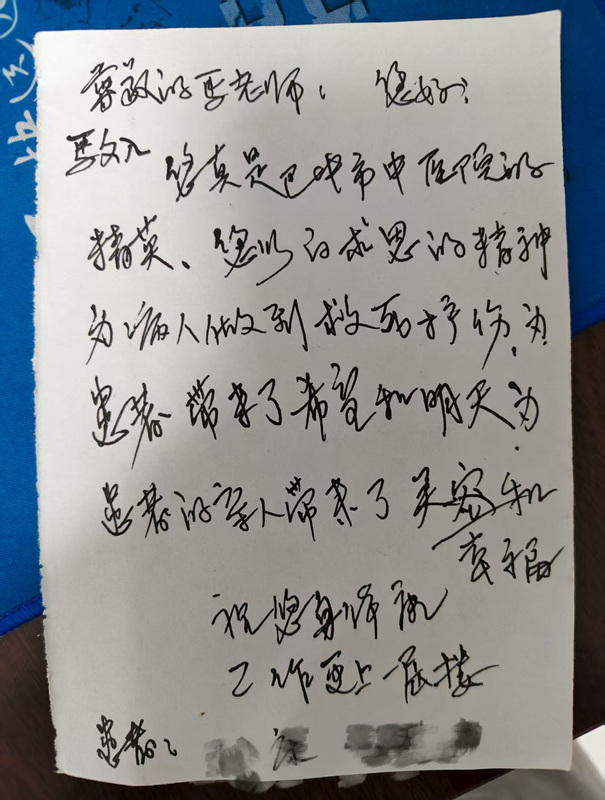 尊敬的王老师：您好：
您真是巴中市中医院的
精英、您以白求恩的精神
为病人做到救死扶伤，为
患者带来了希望和明天为
患者的家人带来了美和
幸福
祝您身体
工作更上一层楼
患者：